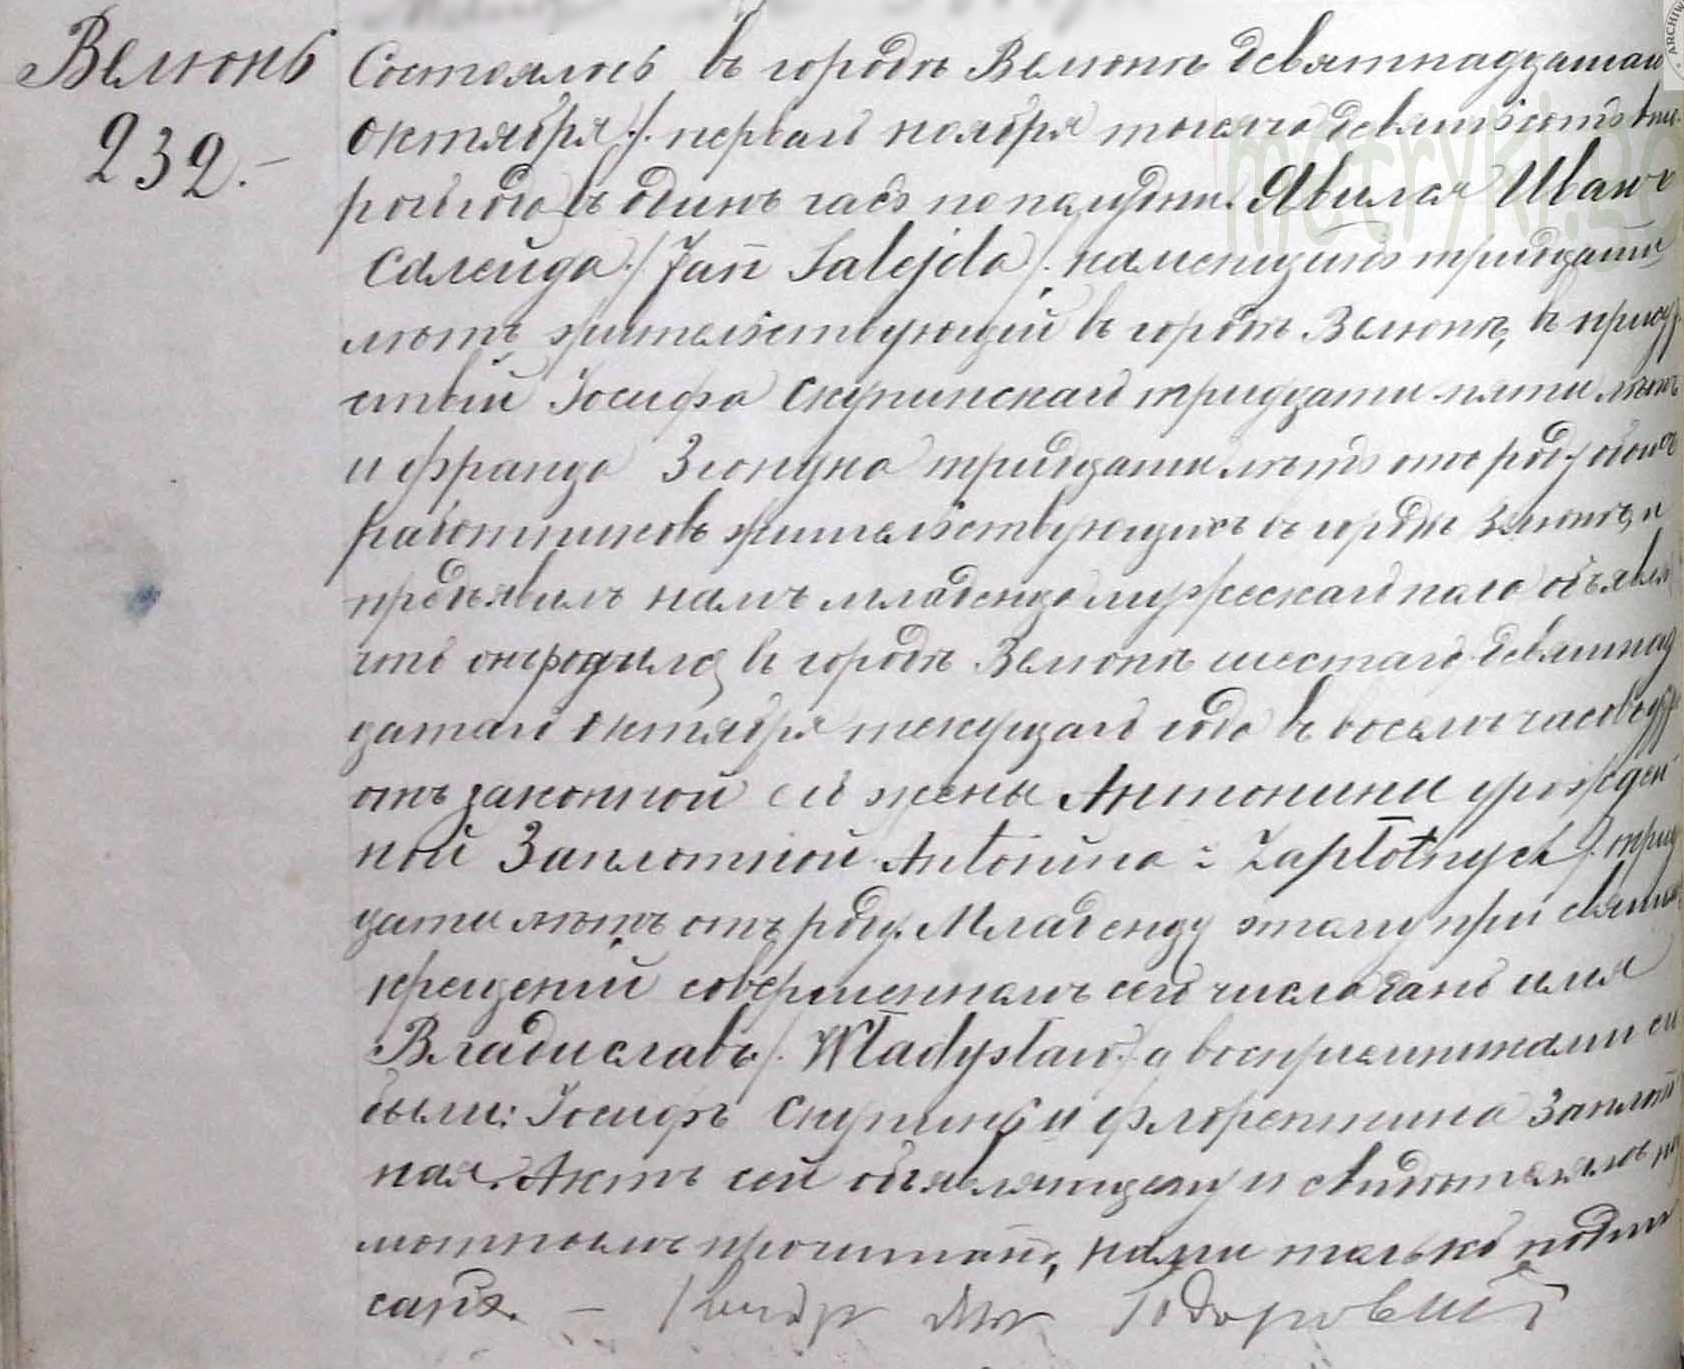 Велюнь
232.-
Состоялось въ городѣ Велюнѣ девятнадцатаго
Октября /. перваго ноября тысяча девятьсотъ вто-
рого года въ одинъ часъ по полудни. Явился Иванъ
Салейда /Jan Salejda/. каменщикъ тридцати
лѣтъ жительствующій въ городѣ Велюнѣ, въ присут-
ствіи Іосифа Скупинскаго тридцати пяти лѣтъ
и Франца тридцати лѣтъ отъ роду обоихъ
работниковъ жительствующихъ въ городѣ Велюнѣ, и
предъявилъ намъ младенца мужескаго пола объявляя
что онъ родился въ городѣ Велюнѣ шестаго девятнад
цатаго Октября текущаго года въ восемь часовъ
отъ законной его жены Антонины урожден
ной Заплотной Antonina : Zapłotnych /. трид
цати лѣтъ отъ роду. Младенцу этому при святомъ
крещеніи совершенномъ сего числа дано имя
Владиславъ /. Władysław./ а воспріемниками его
были: Іосифъ и Флорентина Заплот
ная. Актъ сей объявляющему и свидѣтелямъ негра
мотнымъ прочитанъ, нами только подпи
санъ. —